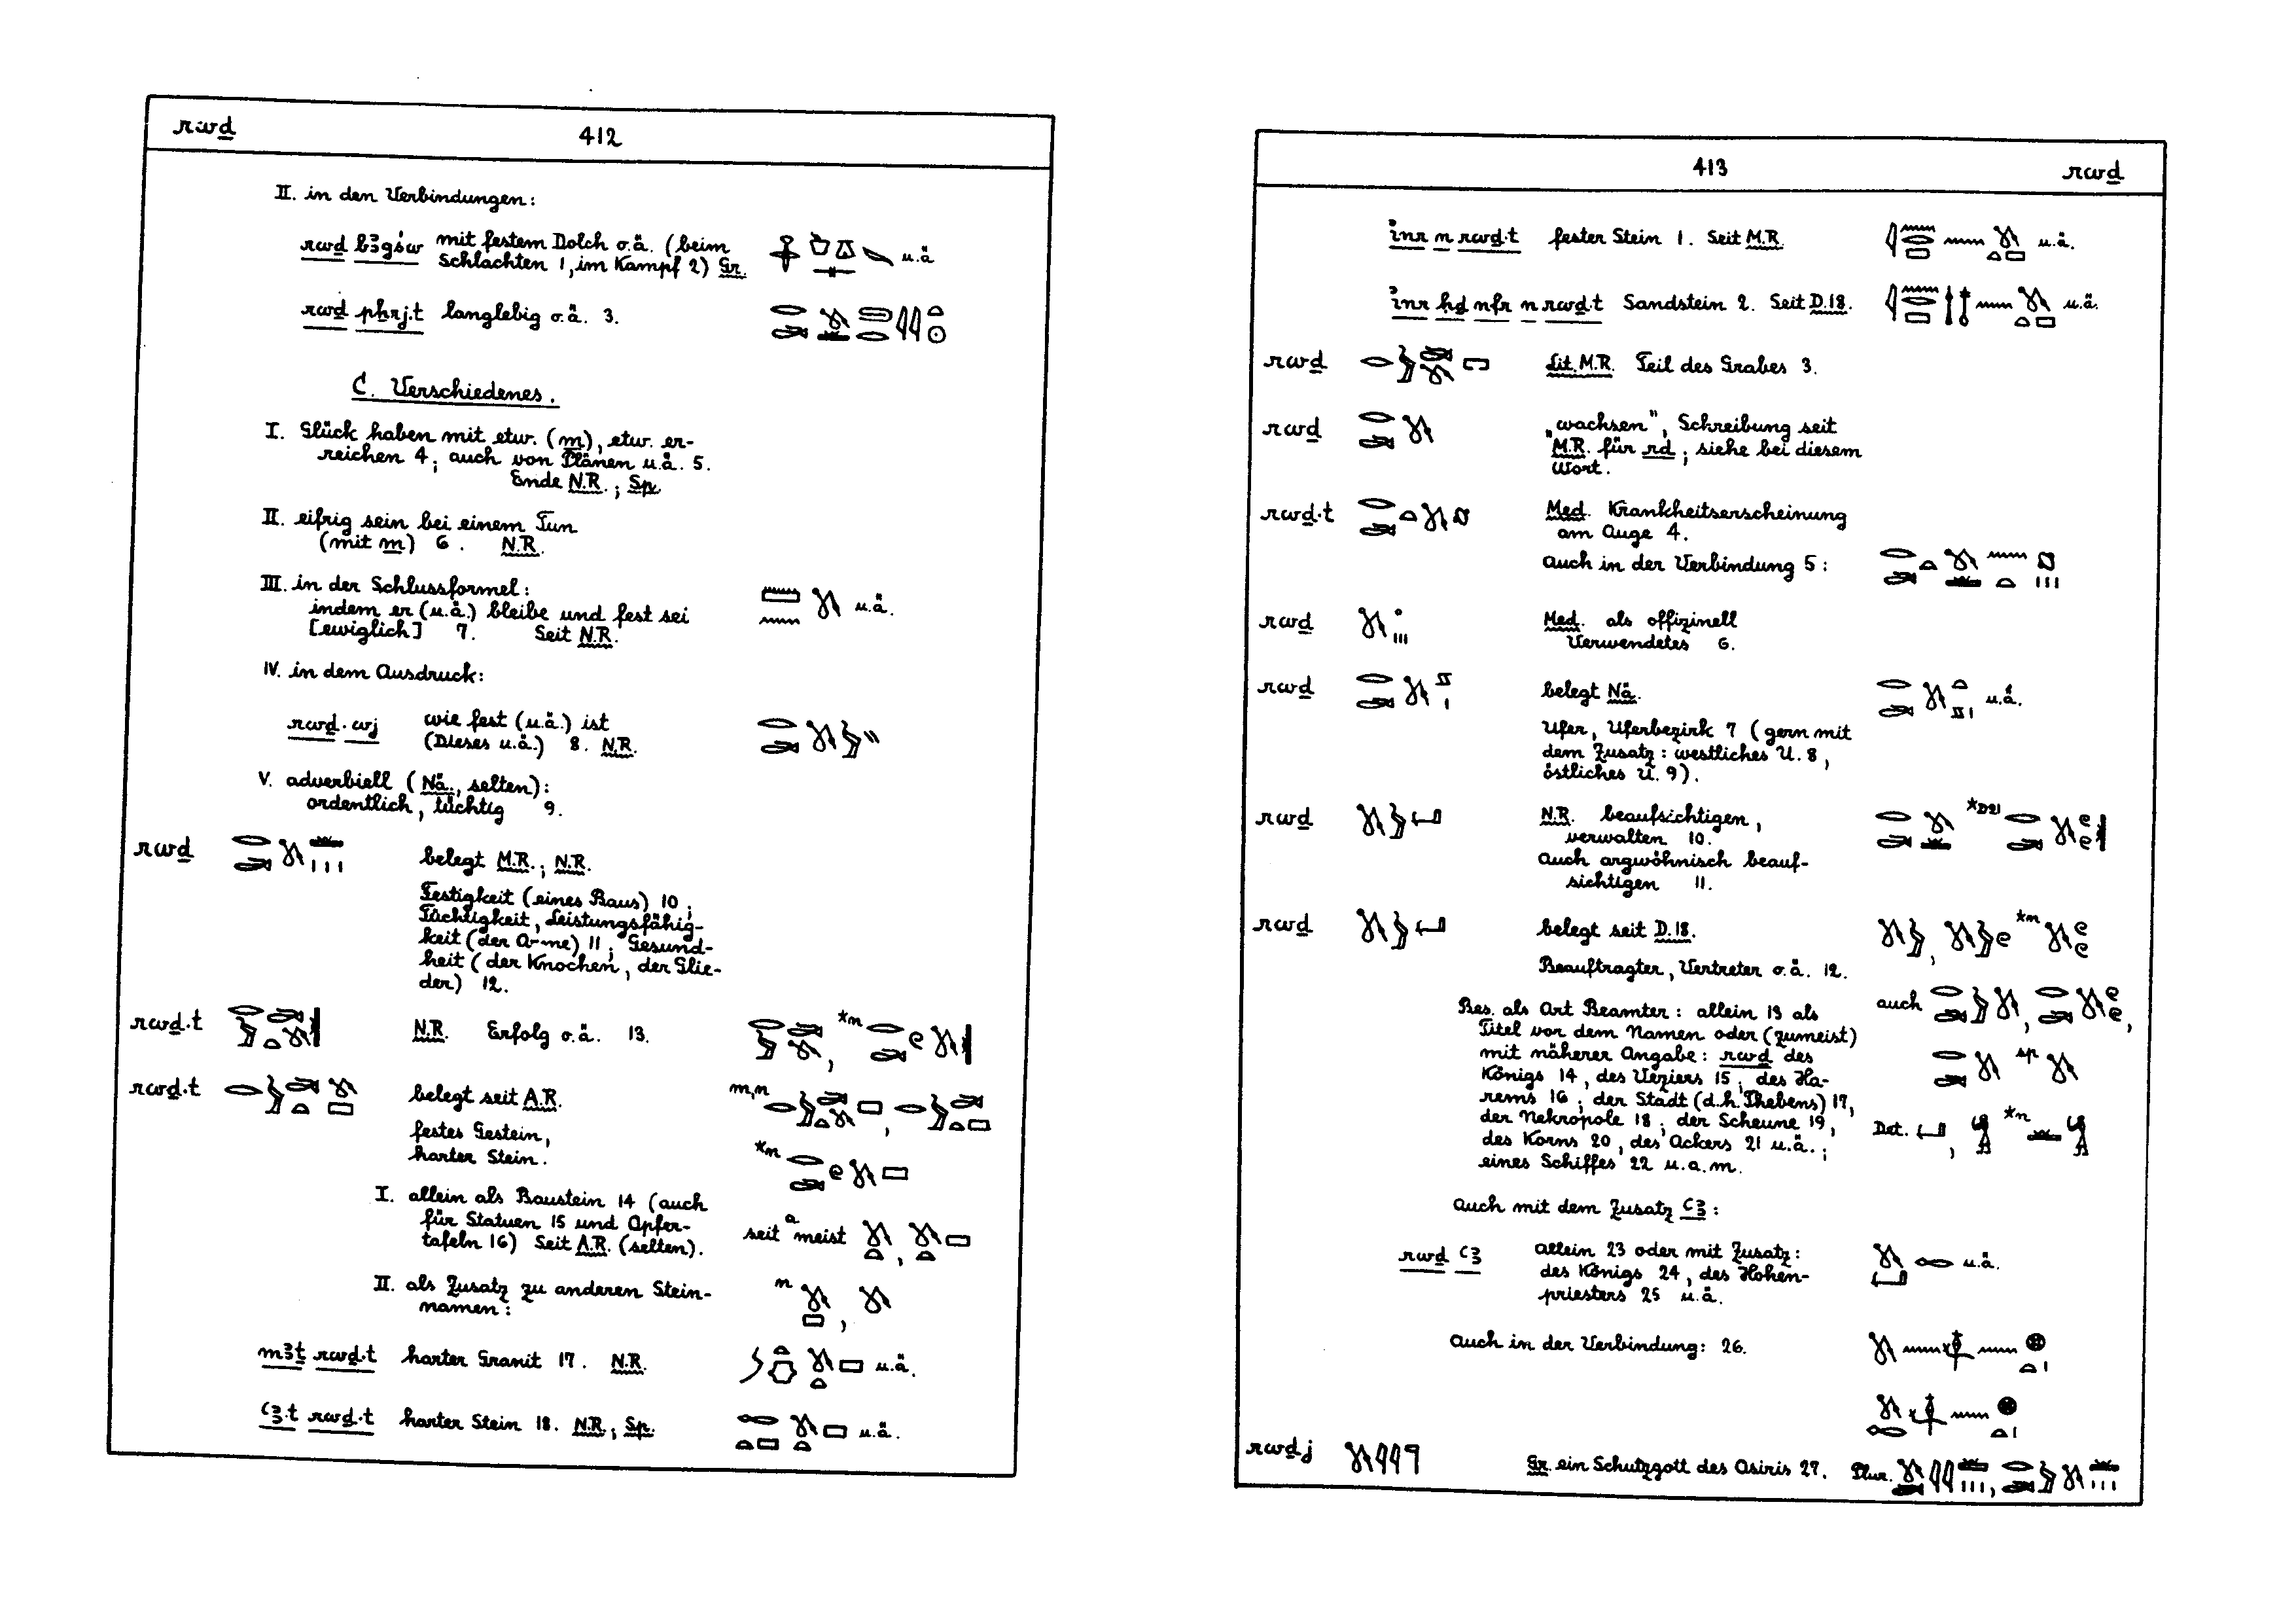 rwḏ
412
II. in den Verbindungen:
rwḏ bꜣgśw mit festem Dolch o.ä. (beim
Schlachten 1, im Kampf 2) Gr.
u.ä
rwḏ pẖrj.t langlebig o.ä. 3.
C. Verschiedenes.
I. Glück haben mit etw. (m), etw. er-
reichen 4; auch von Plänen u.ä. 5.
Ende N.R.; Sp.
II. eifrig sein bei einem Tun
(mit m) 6. N.R.
III. in der Schlussformel:
indem er (u.ä.) bleibe und fest sei
u.ä.
[ewiglich] 7. Seit N.R.
IV. in dem Ausdruck:
rwḏ.wj wie fest (u.ä.) ist
(Dieses u.ä.) 8. N.R.
V. adverbiell (Nä., selten):
ordentlich, tüchtig 9.
rwḏ belegt M.R.; N.R.
Festigkeit (eines Baus) 10;
Tüchtigkeit, Leistungsfähig-
keit (der Arme) 11; Gesund-
heit (der Knochen, der Glie-
der) 12.
rwḏ.t N.R. Erfolg o.ä. 13. , *n
rwḏ.t belegt seit A.R. m,n ,
festes Gestein,
harter Stein. *n
I. allein als Baustein 14 (auch
für Statuen 15 und Opfer-
tafeln 16) Seit A.R. (selten).
seit a meist ,
II. als Zusatz zu anderen Stein-
namen: n ,
mꜣṯ rwḏ.t harter Granit 17. N.R. u.ä.
ꜥꜣ.t rwḏ.t harter Stein 18. N.R.; Sp. u.ä.
413
rwḏ
ỉnr n rwḏ.t fester Stein 1. Seit M.R. u.ä.
ỉnr ḥḏ nfr n rwḏ.t Sandstein 2. Seit D.18. u.ä.
rwḏ Lit. M.R. Teil des Grabes 3.
rwḏ „wachsen", Schreibung seit
M.R. für rd; siehe bei diesem
Wort.
rwḏ.t Med. Krankheitserscheinung
am Auge 4.
auch in der Verbindung 5:
rwḏ Med. als offizinell
Verwendetes 6.
rwḏ belegt Nä. u.ä.
Ufer, Uferbezirk 7 (gern mit
dem Zusatz: westliches U. 8,
östliches U. 9).
rwḏ N.R. beaufsichtigen, *D21
verwalten 10.
auch argwöhnisch beauf-
sichtigen 11.
rwḏ belegt seit D.18. , *n
Beauftragter, Vertreter o.ä. 12.
Bes. als Art Beamter: allein 13 als
auch , ,
Titel vor dem Namen oder (zumeist)
mit näherer Angabe: rwḏ des
sp
Königs 14, des Veziers 15; des Ha-
rems 16; der Stadt (d.h. Thebens) 17,
der Nekropole 18; der Scheune 19,
Det. , *n
des Korns 20, des Ackers 21 u.ä.;
eines Schiffes 22 u.a.m.
Auch mit dem Zusatz ꜥꜣ:
rwḏ ꜥꜣ allein 23 oder mit Zusatz: u.ä.
des Königs 24, des Hohen-
priesters 25 u.ä.
Auch in der Verbindung: 26.
rwḏj Gr. ein Schutzgott des Osiris 27. Plur. ,